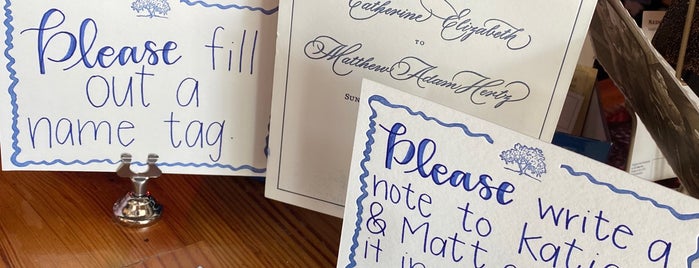 Please fill
out a
name tag.
Catherine Elizabeth
TO
Matthew Adam Hertz
SUN
Please write a
note to Katie
& Matt
it in